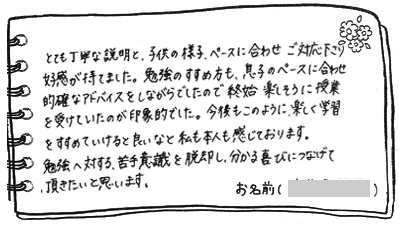 とても丁寧な説明と、子供の様子、ペースに合わせ ご対応下さり
好感が持てました。勉強のすすめ方も、息子のペースに合わせ
的確なアドバイスをしながらでしたので終始楽しそうに授業
を受けていたのが印象的でした。今後もこのように、楽しく学習
をすすめていけると良いなと私も本人も感じております。
勉強へ対する、苦手意識を脱却し、分かる喜びにつなげて
頂きたいと思います。
お名前( )